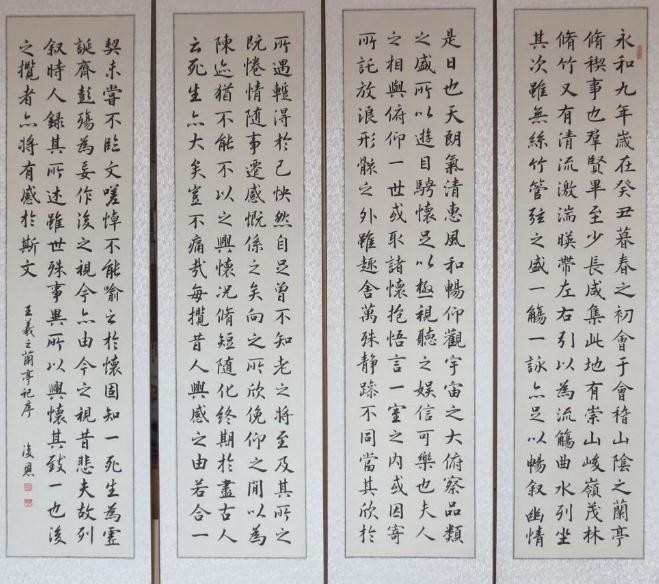 永和九年歲在癸丑暮春之初會于會稽山陰之蘭亭
脩稧事也羣賢畢至少長咸集此地有崇山峻嶺茂林
脩竹又有清流激湍暎帶左右引以為流觴曲水列坐
其次雖無絲竹管弦之盛一觴一詠亦足以暢叙幽情
是日也天朗氣清惠風和暢仰觀宇宙之大俯察品類
之盛所以遊目騁懷足以極視聽之娛信可樂也夫人
之相與俯仰一世或取諸懷抱悟言一室之內或因寄
所託放浪形骸之外雖趣舍萬殊靜躁不同當其欣於
所遇輙得於己怏然自足曾不知老之將至及其所之
既惓情隨事遷感慨係之矣向之所欣俛仰之閒以為
陳迹猶不能不以之興懷況脩短隨化終期於盡古人
云死生亦大矣豈不痛哉每攬昔人興感之由若合一
契未嘗不臨文嗟悼不能喻之於懷固知一死生為虛
誕齊彭殤為妄作後之視今亦由今之視昔悲夫故列
叙時人錄其所述雖世殊事異所以興懷其致一也後
之攬者亦將有感於斯文
王羲之蘭亭記序